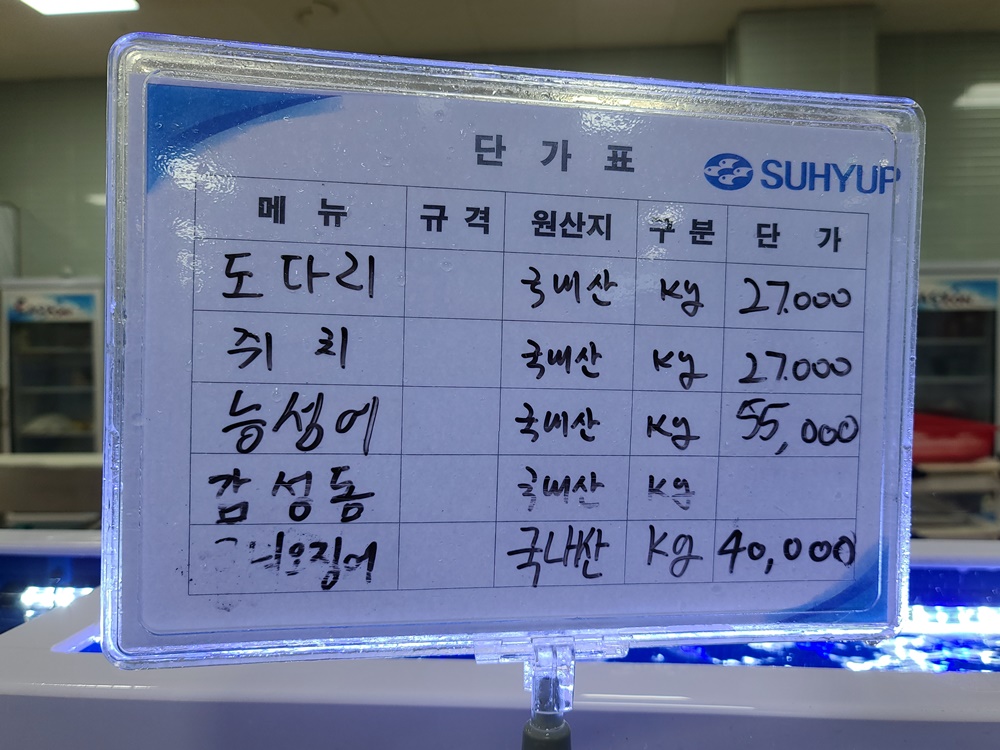 단 가 표
SUHYUP
메 뉴 규 격 원산지 구 분 단 가
도다리 국내산 kg 27.000
쥐 치 국내산 kg 27.000
능성어 국내산 kg 55,000
감성돔 국내산 kg
국내산 kg 40,000